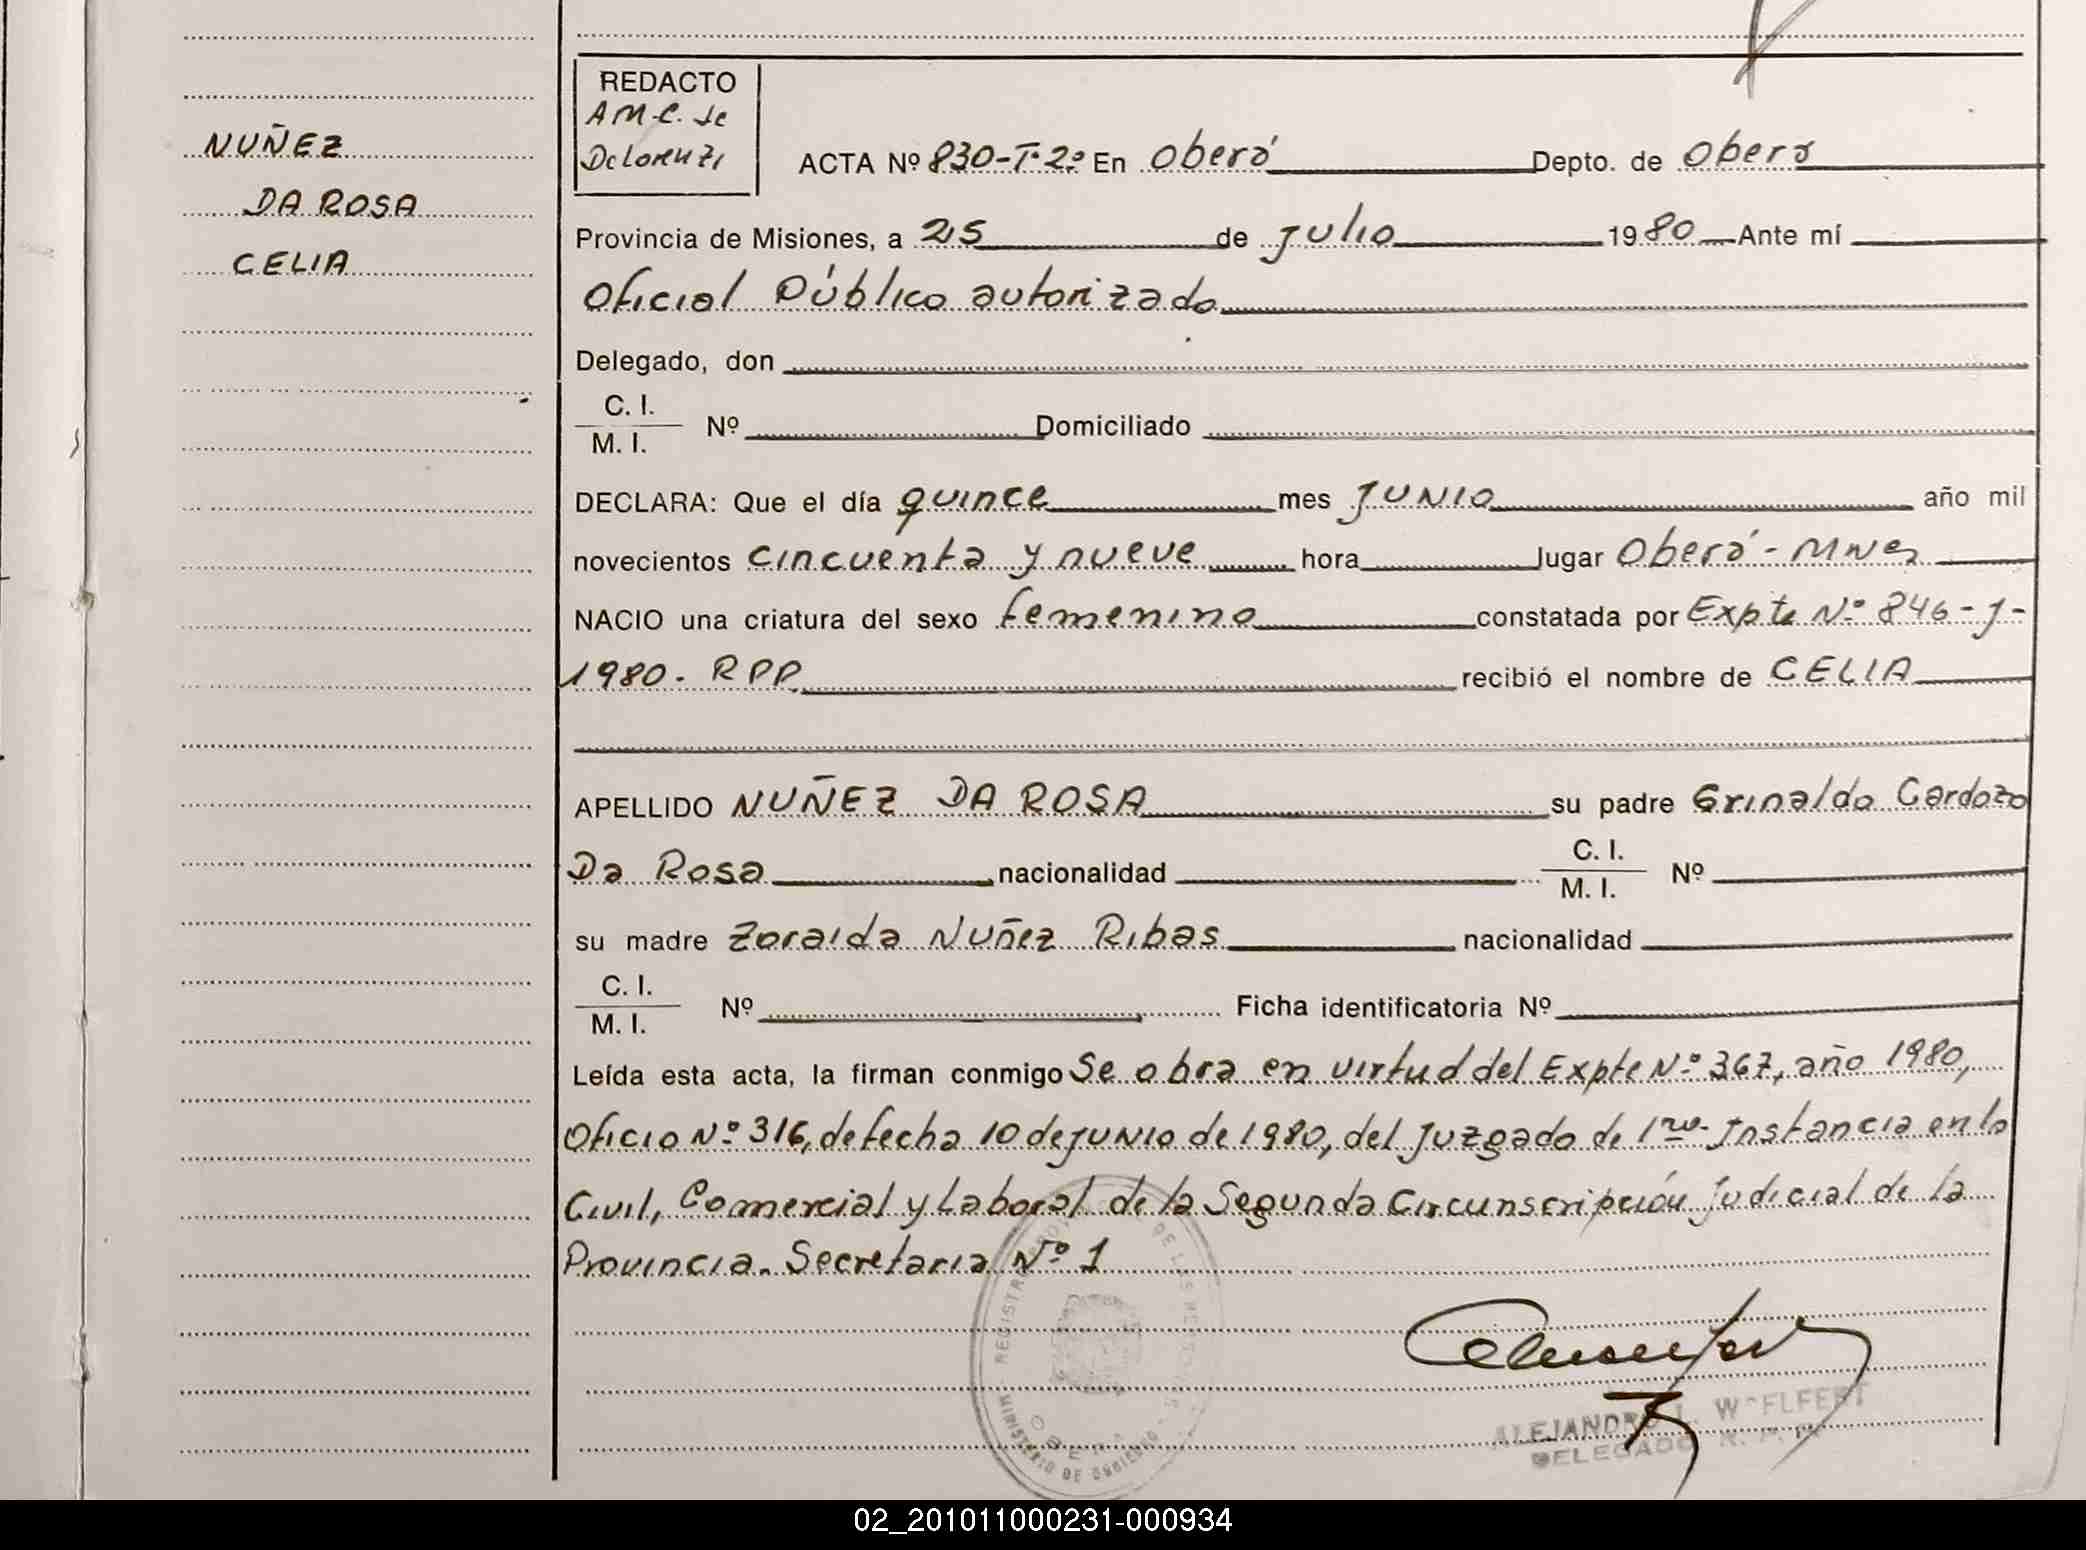 NUÑEZ
DA ROSA
CELIA
REDACTO
A M.C. de
De Lorenzi
ACTA Nº 830-T-2º En Oberá Depto. de Oberá
Provincia de Misiones, a 25 de julio 1980 Ante mí
Oficial Público autorizado
Delegado, don
C. I.
M. I. Nº Domiciliado
DECLARA: Que el día quince mes JUNIO año mil
novecientos cincuenta y nueve hora lugar Oberá - Mnes
NACIO una criatura del sexo femenino constatada por Expte Nº 846-J-
1980. RPP recibió el nombre de CELIA
APELLIDO NUÑEZ DA ROSA su padre Grinaldo Cardozo
Da Rosa nacionalidad C. I.
M. I. Nº
su madre Zoraida Nuñez Ribas nacionalidad
C. I.
M. I. Nº Ficha identificatoria Nº
Leída esta acta, la firman conmigo Se obra en virtud del Expte Nº 367, año 1980,
Oficio Nº 316, de fecha 10 de JUNIO de 1980, del Juzgado de 1ra Instancia en lo
Civil, Comercial y Laboral de la Segunda Circunscripción Judicial de la
Provincia. Secretaria Nº 1
MINISTERIO DE GOBIERNO
OBERA
ALEJANDRO L. WOELFERT
DELEGADO R. P. P.
02_201011000231-000934